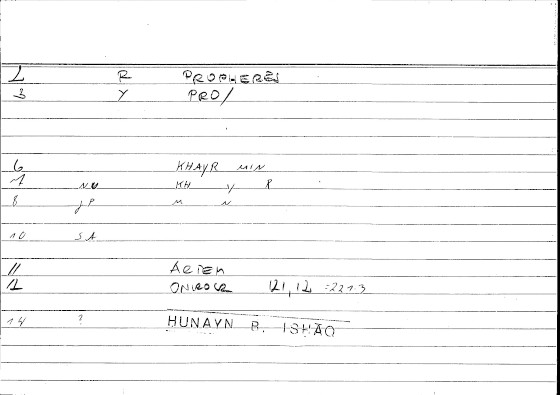 2 R PROPHERES
3 Y PRO/
6 KHAYR MIN
7 NU KH Y R
8 JP M N
10 SA
11 ARTEM
12 ONIROCR 121,12 =2213
14 ? HUNAYN B. ISHAQ